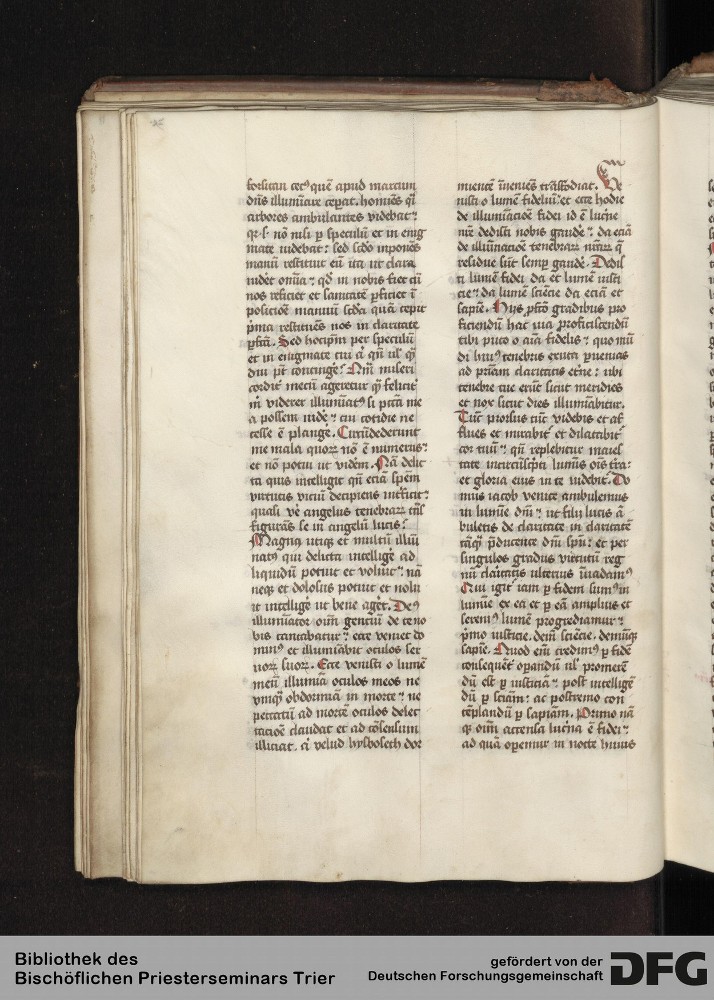 forsitan cecꝰ quē apud marcum
dn̄s illumīare ceꝑat. homīes q̄i
arbores ambulantes videbat
nō nisi ꝑ speculū et in enig
mate videbat: sed scđo imponēs
manū restituit eū ita ut clara
videt om̄ia qđ in nobis fiet cū
nos reficiet et sanitatē ꝑficiet ī
posicōē manuū scđa quā cepit
pͥma restituēs nos in claritate
ꝑfcā. Sed hocipm̄ per speculū
et in enigmate
diu pt̄ contingē? miseri
cordit̓ mecū ageretur q̄ felicit̓
m̄ viderer illumīatꝰ si pctā me
a possem vidē cū cotidie ne
cesse ē plangē. Circūdederunt
me mala quoꝝ nō ē numerus
et nō potui ut vidēm. Nā delic
ta quis intelligit qn̄ eciā spēm
virtutis viciū decipiens
quasi vē angelus tenebraꝝ
figurās se in angelū lucis?
Magnꝰ utiqꝫ et multū illūi
natꝰ qui delicta intelligē ad
liquidū potuit et voluit nā
neqꝫ et dolosus potuit et nolu
it intelligē ut bene agēt. Deꝰ
illumīator oīm genciū de te no
bis cantabatur ecce veniet do
minꝰ et illumīabit oculos ser
uoꝝ suoꝝ. Ecce venisti o lumē
meū illumīa oculos meos ne
vmqͣ obdormiā in morte ne
peccatū ad mortē oculos delec
tacioē claudat et ad cōsensum
illiciat. velud hysboseth dor
mientē īueniēs trāsfodiat.
nisti o lumē fideliū et ecce hodie
de illumīacōē fidei id ē lucne
nrē dedisti nobis gaudē da eciā
de illumīacōē tenebraꝝ nraꝝ q̄
residue sūt semꝑ gaudē. Dedis
ti lumē fidei da et lumē iusti
cie da lumē sciēcie da eciā et
sapīe. Hys pfcō gradibus pro
ficiendū hac via proficiscendū
tibi puto o aīa fidelis quo mū
di huiꝰ tenebris exuta ꝑuenias
ad pr̄iam claritatis etn̄e: ubi
tenebre tue erūt sicut meridies
et nox sicut dies illumīabitur.
Tūc prorsus tūc videbis et af
flues et mirabit̓ et dilatabit̓
cor tuū qn̄ replebitur maies
tate incircūsc̄pti lumīs oīs tr̄a
et gloria eius in te videbit̓. Do
mus iacob venite ambulemus
in lumīe dn̄i ut filij lucis ā
buletis de claritate in claritatē
tāqͣ ꝑducente dn̄i spū et per
singulos gradus virtutū reg
nū claritatis ulterius īuadamꝰ
Qui igit̓ iam ꝑ fidem sumꝰ in
lumīe ex ea et ꝑ eā amplius et
serenꝰ lumē progrediamur
pͥmo iusticie, dein̄ sciēcie, demūqꝫ
sapīe. Quod enī credimꝰ ꝑ fidē
consequēt̓ oꝑandū promerē
dū est ꝑ iusticiā post intelligē
dū ꝑ sciam: ac postremo con
tēplandū ꝑ sapiam. Primo nāqꝫ
oīm accensa lucna ē fidei
ad quā oꝑemur in nocte huius
Bibliothek des
Bischöflichen Priesterseminars Trier
gefördert von der
Deutschen Forschungsgemeinschaft
DFG